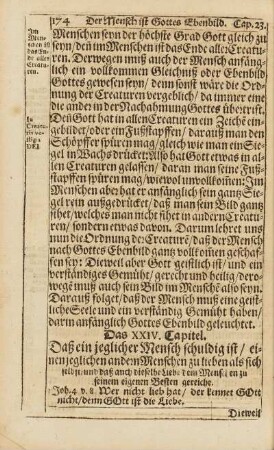 174 Der Mensch ist Gottes Ebenbild. Cap. 23.
Menschen seyn der höchste Grad Gott gleich zu
seyn / deñ im Menschen ist das Ende aller Creatu-
ren. Derwegen muß auch der Mensch anfäng-
lich ein vollkommen Gleichnuß oder Ebenbild
Gottes gewesen seyn / denn sonst wäre die Ord-
nung der Creaturen vergeblich / da immer eine
die ander in der Nachahmung Gottes übertrift.
Deñ Gott hat in allen Creaturen ein Zeichẽ ein-
gebildet / oder ein Fußstapffen / darauß man den
Schöpffer spüren mag / gleich wie man ein Sie-
gel in Wachs drücket: Also hat Gott etwas in al-
len Creaturen gelassen / daran man seine Fuß-
stapffen spüren mag / wiewol unvollkomen: Im
Menschen aber hat er anfänglich sein gantz Sie-
gel rein außgedrückt / daß man sein Bild gantz
sihet / welches man nicht sihet in andern Creatu-
ren / sondern etwas davon. Darum lehret uns
nun die Ordnung der Creaturẽ / daß der Mensch
nach Gottes Ebenbild gantz vollkomen geschaf-
fen sey: Dieweil aber Gott geistlich ist / und ein
verständiges Gemüht / gerecht und heilig / dero-
wege muß auch sein Bild im Menschẽ also seyn.
Darauß folget / daß der Mensch muß eine geist-
liche Seele und ein verständig Gemüt haben /
darin anfänglich Gottes Ebenbild geleuchtet.
Das XXIV. Capitel.
Daß ein jeglicher Mensch schuldig ist / ei-
nen jeglichen andern Menschen zu lieben als sich
selbst / und daß auch dieselbe Liebe dem Menschen zu
seinem eigenen Besten gereiche.
Joh. 4 v. 8. Wer nicht lieb hat / der kennet GOtt
nicht / denn GOtt ist die Liebe.
Dieweil
Im
Men-
schen ist
das En-
de aller
Creatu-
ren.
In
Creatu-